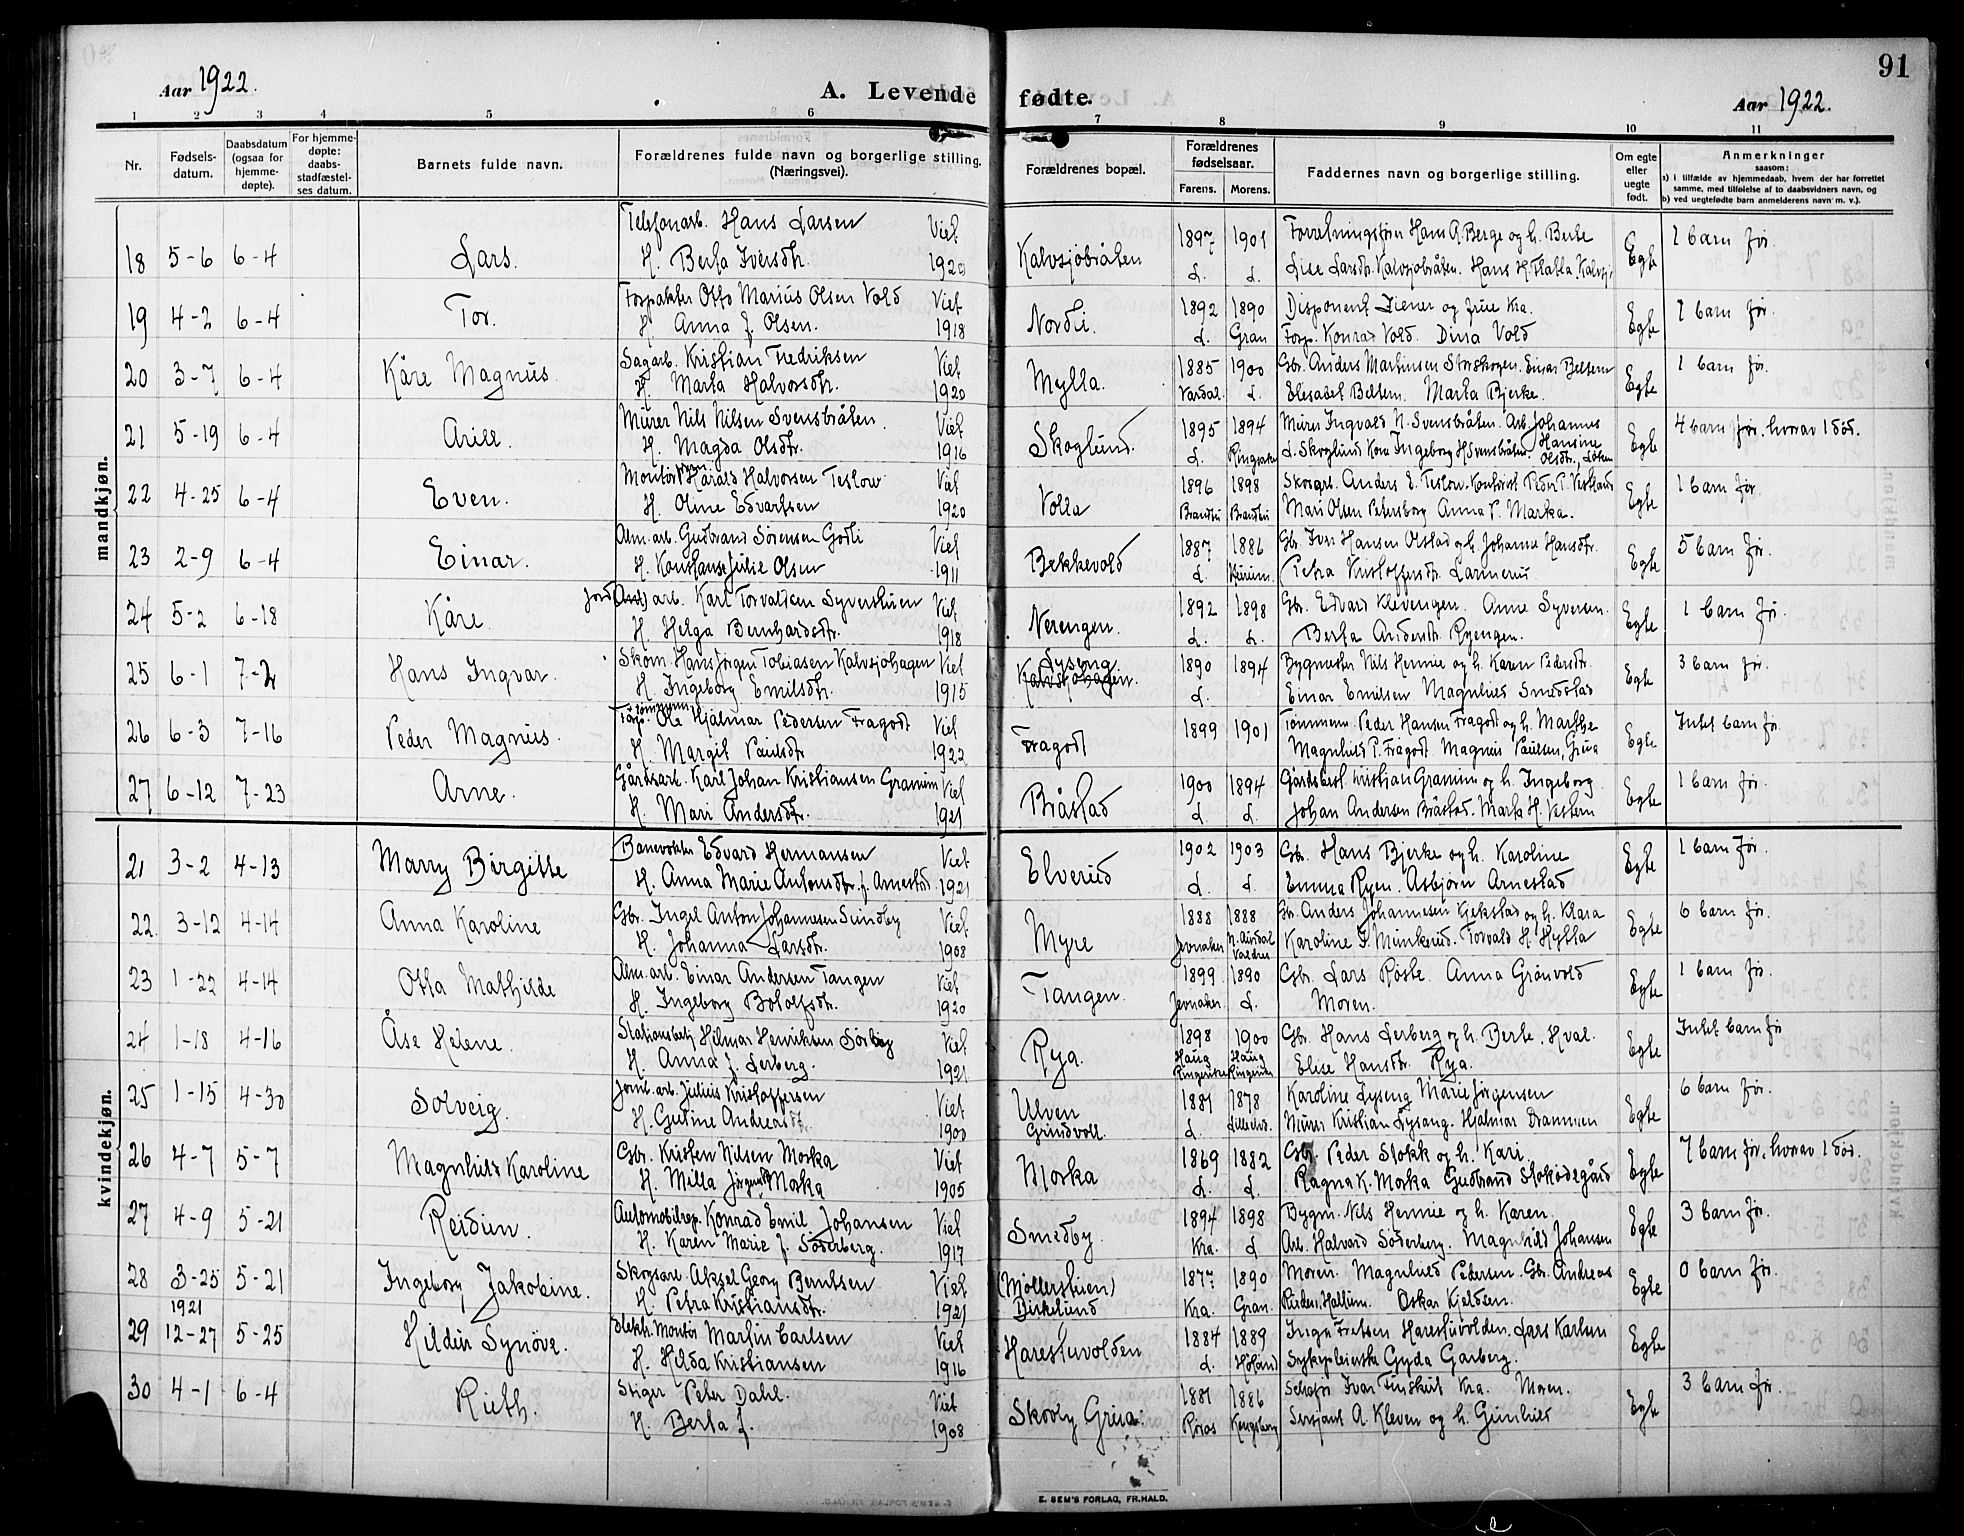 91
Aar 1922.
A. Levende fødte.
Aar 1922.
1 2 3 4 5 6 7 8 9 10 11
Nr.
Fødsels-
datum.
Daabsdatum
(ogsaa for
hjemme-
døpte).
For hjemme-
døpte:
daabs-
stadfæstel-
ses datum.
Barnets fulde navn.
Forældrenes fulde navn og borgerlige stilling.
(Næringsvei).
Forældrenes bopæl.
Forældrenes
fødselsaar.
Farens. Morens.
Faddernes navn og borgerlige stilling.
Om egte
eller
uegte
født.
Anmerkninger
saasom:
a) i tilfælde av hjemmedaab, hvem der har forrettet
samme, med tilføielse af to daabsvidners navn, og
b) ved uegtefødte barn anmelderens navn m. v.).
mandkjøn.
Telefonarb. Hans Larsen Viet 1897 1901 Forretningsfører Hans A. Berge og h. Berte 1 barn før.
18 5-6 6-4 Lars. H. Berta Iversdtr. 1920 Kalvsjøbråten d. d. Lise Larsdtr. Kalvsjøbråten. Hans H. Flatla, Kalvsj. Egte
Forpakter Otto Marius Olsen Vold Viet 1892 1890 Disponent Ziener og frue Kra. 1 barn før.
19 4-2 6-4 Tor. H. Anna f. Olsen. 1918 Nordli. d. Gran Forp. Konrad Vold. Dina Vold Egte
Sagarb. Kristian Fredriksen Viet 1885 1900 Gbr. Anders Martinsen Storskogen. Einar Beltern 1 barn før.
20 3-7 6-4 Kåre Magnus. H. Marta Halvorsdtr. 1920 Mylla. Vardal. d. Elesabet Beltern. Marta Bjerke. Egte
Murer Nils Nilsen Svensbråten. Viet 1895 1894 Murer Ingvald N. Svensbråten. Arb. Johannes 4 barn før. hvorav 1 död.
21 5-19 6-4 Arill. H. Magda Olsdtr. 1916 Skoglund. d. Ringsaker d. Skoglund Kone Ingeborg H. Svensbråten. Hansine Olsdtr., Egte
Montör Harald Halvorsen Teslow Viet 1896 1898 Skogarb. Anders E. Teslow. Kontorist Peder P. Vestland 1 barn før.
22 4-25 6-4 Even. H. Oline Edvartsen 1920 Volla Brandbu Brandbu Mari Olsen Petersborg Anna P. Marka. Egte
Alm. arb. Gudbrand Sørensen Godli Viet 1887 1886 Gbr. Iver Hansen Olstad og h. Johanne Hansdtr. 5 barn før.
23 2-9 6-4 Einar. H. Konstanse Julie Olsen 1911 Bekkevold d. Petra Kristoffersdtr. Larmerud Egte
Jord arb. Karl Torvaldsen Syverstuen Viet 1892 1898 Gbr. Edvard Klevengen. Anne Syversen. 1 barn før.
24 5-2 6-18 Kåre. H. Helga Bernhardsdtr. 1918 Nerengen. d. d. Berta Andersdtr. Ryengen. Egte
Skom. Hans Jörgen Tobiasen Kalvsjohagen Viet Lyseng. 1890 1894 Bygmester Nils Hennie og h. Karen Pedersdtr. 3 barn før.
25 6-1 7-2 Hans Ingvar. H. Ingeborg Emilsdtr. 1915 Kalvsjøhagen. d. Einar Emilsen Magnhild Smedstad Egte
Ole Hjalmar Pedersen Fragodt Viet 1899 1901 Tømmerm. Peder Hansen Fragodt og h. Marthe Intet barn før.
26 6-3 7-16 Peder Magnus. H. Margit Paulsdtr. 1922 Fragodt Magnhild P. Fragodt. Magnus Paulsen, Grua Egte
Gårdsarb. Karl Johan Kristiansen Granum Viet 1900 1894 Gårdsbest. Kristian Granum og h. Ingeborg 1 barn før.
27 6-12 7-23 Arne. H. Mari Andersdtr. 1921 Bråstad d. d. Johan Andersen Bråstad. Marta H. Vestern Egte
kvindekjøn.
Banevokter Edvard Hermansen Viet 1902 1903 Gbr. Hans Bjerke og h. Karoline 1 barn før.
21 3-2 4-13 Marry Birgitte H. Anna Marie Antonsdtr. f. Arnestad 1921 Elverud d. d. Emma Ryen. Asbjörn Arnestad Egte
Gbr. Ingel Anton Johannesen Sundby Viet 1888 1888 Gbr. Anders Johannesen Kjekstad og h. Klara 6 barn før.
22 3-12 4-14 Anna Karoline H. Johanna Larsdtr. 1908 Myre Jevnaker N. Aurdal Valdres Karoline I. Munkerud. Torvald H. Hytta Egte
Alm. arb. Einar Andersen Tangen Viet 1899 1890 Gbr. Lars Røste. Anna Grönvold 1 barn før.
23 1-22 4-14 Otta Mathilde H. Ingeborg Botolfsdtr. 1920 Tangen. Jevnaker. d. Moren. Egte
Stationsbetj. Hilmar Henriksen Sörbig Viet 1898 1900 Gbr. Hans Lerberg og h. Berte. Hval. Intet barn før
24 1-18 4-16 Åse Helene. H. Anna f. Lerberg. 1921 Rya. Haug Ringerike Haug Ringerike Elise Hansdtr. Rya. Egte
Jernb. arb. Julius Kristoffersen Viet 1881 1878 Karoline Lyseng Marie Jörgensen 6 barn før.
25 1-15 4-30 Solveig. H. Gustine Andreasdtr. 1900 Ulven Grindvoll. d. Lilleh. Murer Kristian Lysang. Hjalmar Drammen Egte
Gbr. Kristen Nilsen Morka Viet 1869 1882 Gbr. Peder Stokk og h. Kari. 7 barn før. hvorav 1 död.
26 4-7 5-7 Magnhild Karoline H. Milla Morka 1905 Morka d. d. Ragna K. Morka Gudbrand Stokkødegård Egte
Automobilrep. Konrad Emil Johansen Viet 1894 1898 Bygm. Nils Hennie og h. Karen. 3 barn før.
27 4-9 5-21 Reidun. H. Karen Marie f. Söderberg. 1917 Smedby Kra. d Arb. Halvard Söderberg. Magnhild Johansen Egte
Skogsarb. Aksel Georg Berntsen Viet (Möllerstuen) 1877 1890 Moren. Magnhild Pedersen. Gbr. Andreas 0 barn før.
28 3-25 5-21 Ingeborg Jakobine. H. Petra Kristiansdtr. 1921 Birkelund Kra. Gran. Hallum. Oskar Kjelden. Egte
1921
Elektr. Montör Martin Carlsen Viet 1884 1889 Inga Fretsen Harestuvolden. Lars Karlsen
29 12-27 5-25 Hildur Synöve. H. Hilda Kristiansen 1916 Harestuvolden d. Høland Sykepleierske Gyda Garberg. Egte
Stiger Peter Dahl. Viet 1881 1886 Schafør Ivar Finskut Kra. Moren. 3 barn før.
30 4-1 6-4 Rieth. H. Berta f. 1908 Skovly Grua. Röros Kongsberg Sersjant A. Kleven og h. Gunhild Egte
E. SEM'S FORLAG, FR.HALD.